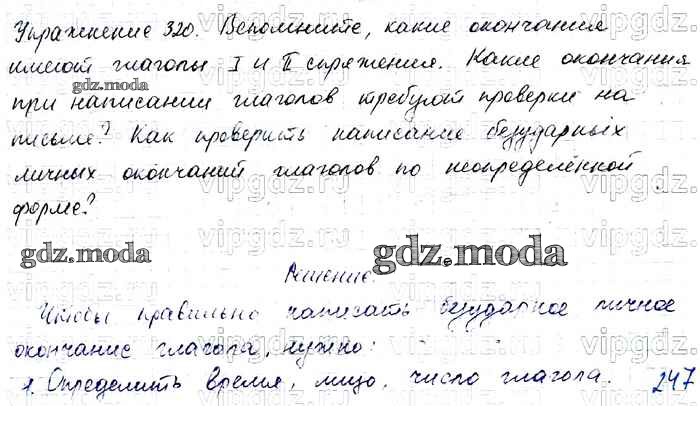 Упражнение 320. Вспомните, какие окончания
имеют глаголы I и II спряжения. Какие окончания
gdz.moda
при написании глаголов требуют проверки на
письме? Как проверить написание безударных
личных окончаний глаголов по неопределённой
форме?
gdz.moda
gdz.moda
Решение.
Чтобы правильно написать безударное личное
окончание глагола, нужно:
1. Определить время, лицо, число глагола.
247